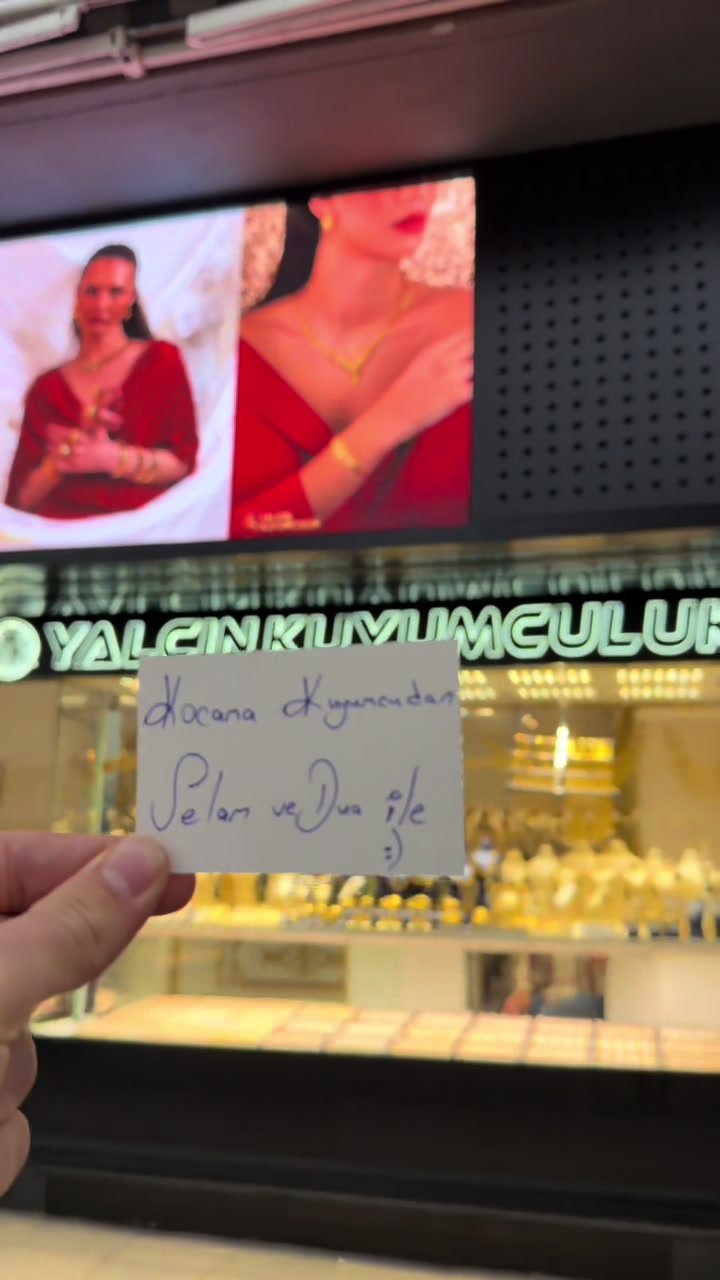 YALÇIN KUYUMCULUK
Kocana Kuyumcudan
Selam ve Dua ile
:)